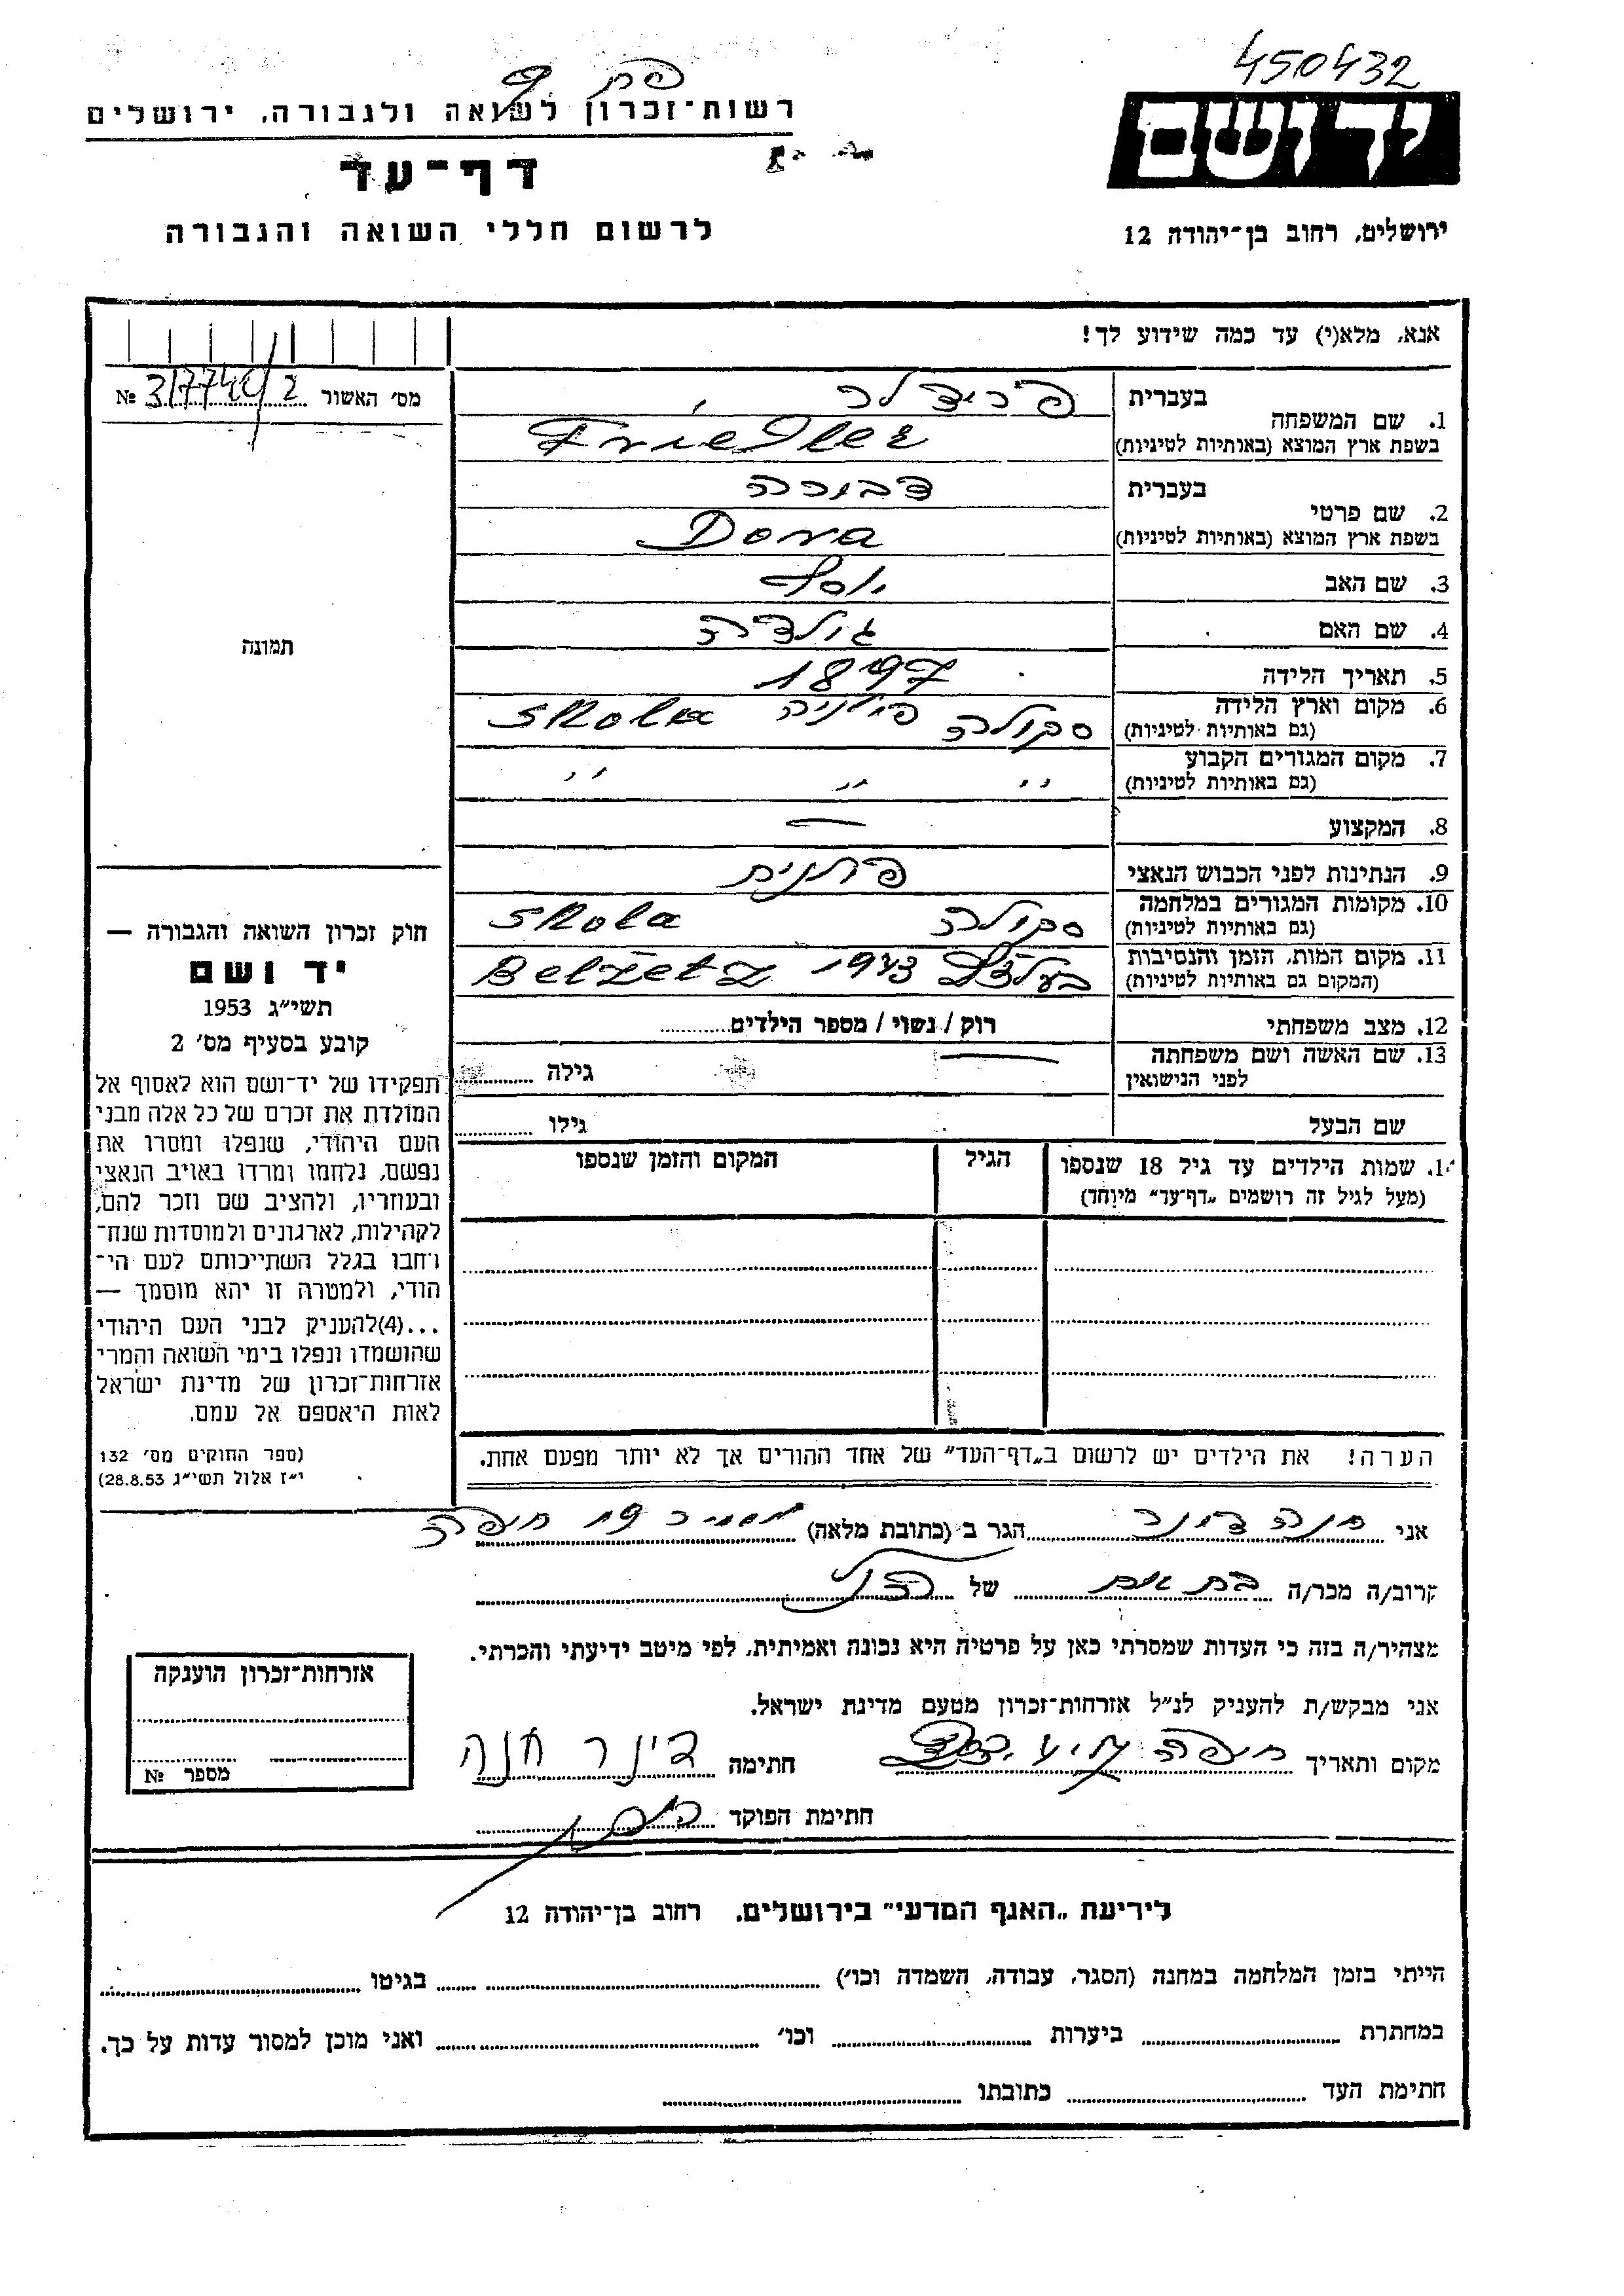 450432
רשות־זכרון לשואה ולגבורה, ירושלים
יד ושם
דף־עד
לרשום חללי השואה והגבורה
ירושלים, רחוב בן־יהודה 12
אנא, מלא(י) עד כמה שידוע לך!
מס׳ האשור 317740/2 №
בעברית פרידלר
1. שם המשפחה
בשפת ארץ המוצא (באותיות לטיניות) Friedler
בעברית דבורה
2. שם פרטי
בשפת ארץ המוצא (באותיות לטיניות) Dora
3. שם האב יוסף
4. שם האם גולדה
תמונה
5. תאריך הלידה 1897
6. מקום וארץ הלידה
(גם באותיות לטיניות) סקולה פולניה Skola
7. מקום המגורים הקבוע
(גם באותיות לטיניות) ״ ״ ״
8. המקצוע —
9. הנתינות לפני הכבוש הנאצי פולנית
10. מקומות המגורים במלחמה
(גם באותיות לטיניות) סקולה Skola
11. מקום המות, הזמן והנסיבות
(המקום גם באותיות לטיניות) בעלזץ 1943 Belzetz
12. מצב משפחתי רוק / נשוי / מספר הילדים
13. שם האשה ושם משפחתה
לפני הנישואין — גילה
שם הבעל גילו
14. שמות הילדים עד גיל 18 שנספו הגיל המקום והזמן שנספו
(מעל לגיל זה רושמים „דף־עד״ מיוחד)
הערה! את הילדים יש לרשום ב„דף־העד״ של אחד ההורים אך לא יותר מפעם אחת.
חוק זכרון השואה והגבורה —
יד ושם
תשי״ג 1953
קובע בסעיף מס׳ 2
תפקידו של יד־ושם הוא לאסוף אל
המולדת את זכרם של כל אלה מבני
העם היהודי, שנפלו ומסרו את
נפשם, נלחמו ומרדו באויב הנאצי
ובעוזריו, ולהציב שם וזכר להם,
לקהילות, לארגונים ולמוסדות שנח־
רחבו בגלל השתייכותם לעם הי־
הודי, ולמטרה זו יהא מוסמך —
...(4)להעניק לבני העם היהודי
שהושמדו ונפלו בימי השואה והמרי
אזרחות־זכרון של מדינת ישראל
לאות היאספם אל עמם.
(ספר החוקים מס׳ 132
י״ז אלול תשי״ג 28.8.53)
אני חנה דינר הגר ב (כתובת מלאה) 19 חיפה
קרוב/ה מכר/ה בת אם של
מצהיר/ה בזה כי העדות שמסרתי כאן על פרטיה היא נכונה ואמיתית, לפי מיטב ידיעתי והכרתי.
אני מבקש/ת להעניק לנ״ל אזרחות־זכרון מטעם מדינת ישראל.
מקום ותאריך חיפה חתימה דינר חנה
חתימת הפוקד
אזרחות־זכרון הוענקה
מספר №
לידיעת „האגף המדעי״ בירושלים. רחוב בן־יהודה 12
הייתי בזמן המלחמה במחנה (הסגר, עבודה, השמדה וכו׳) בגיטו
במחתרת ביערות וכו׳ ואני מוכן למסור עדות על כך.
חתימת העד כתובתו